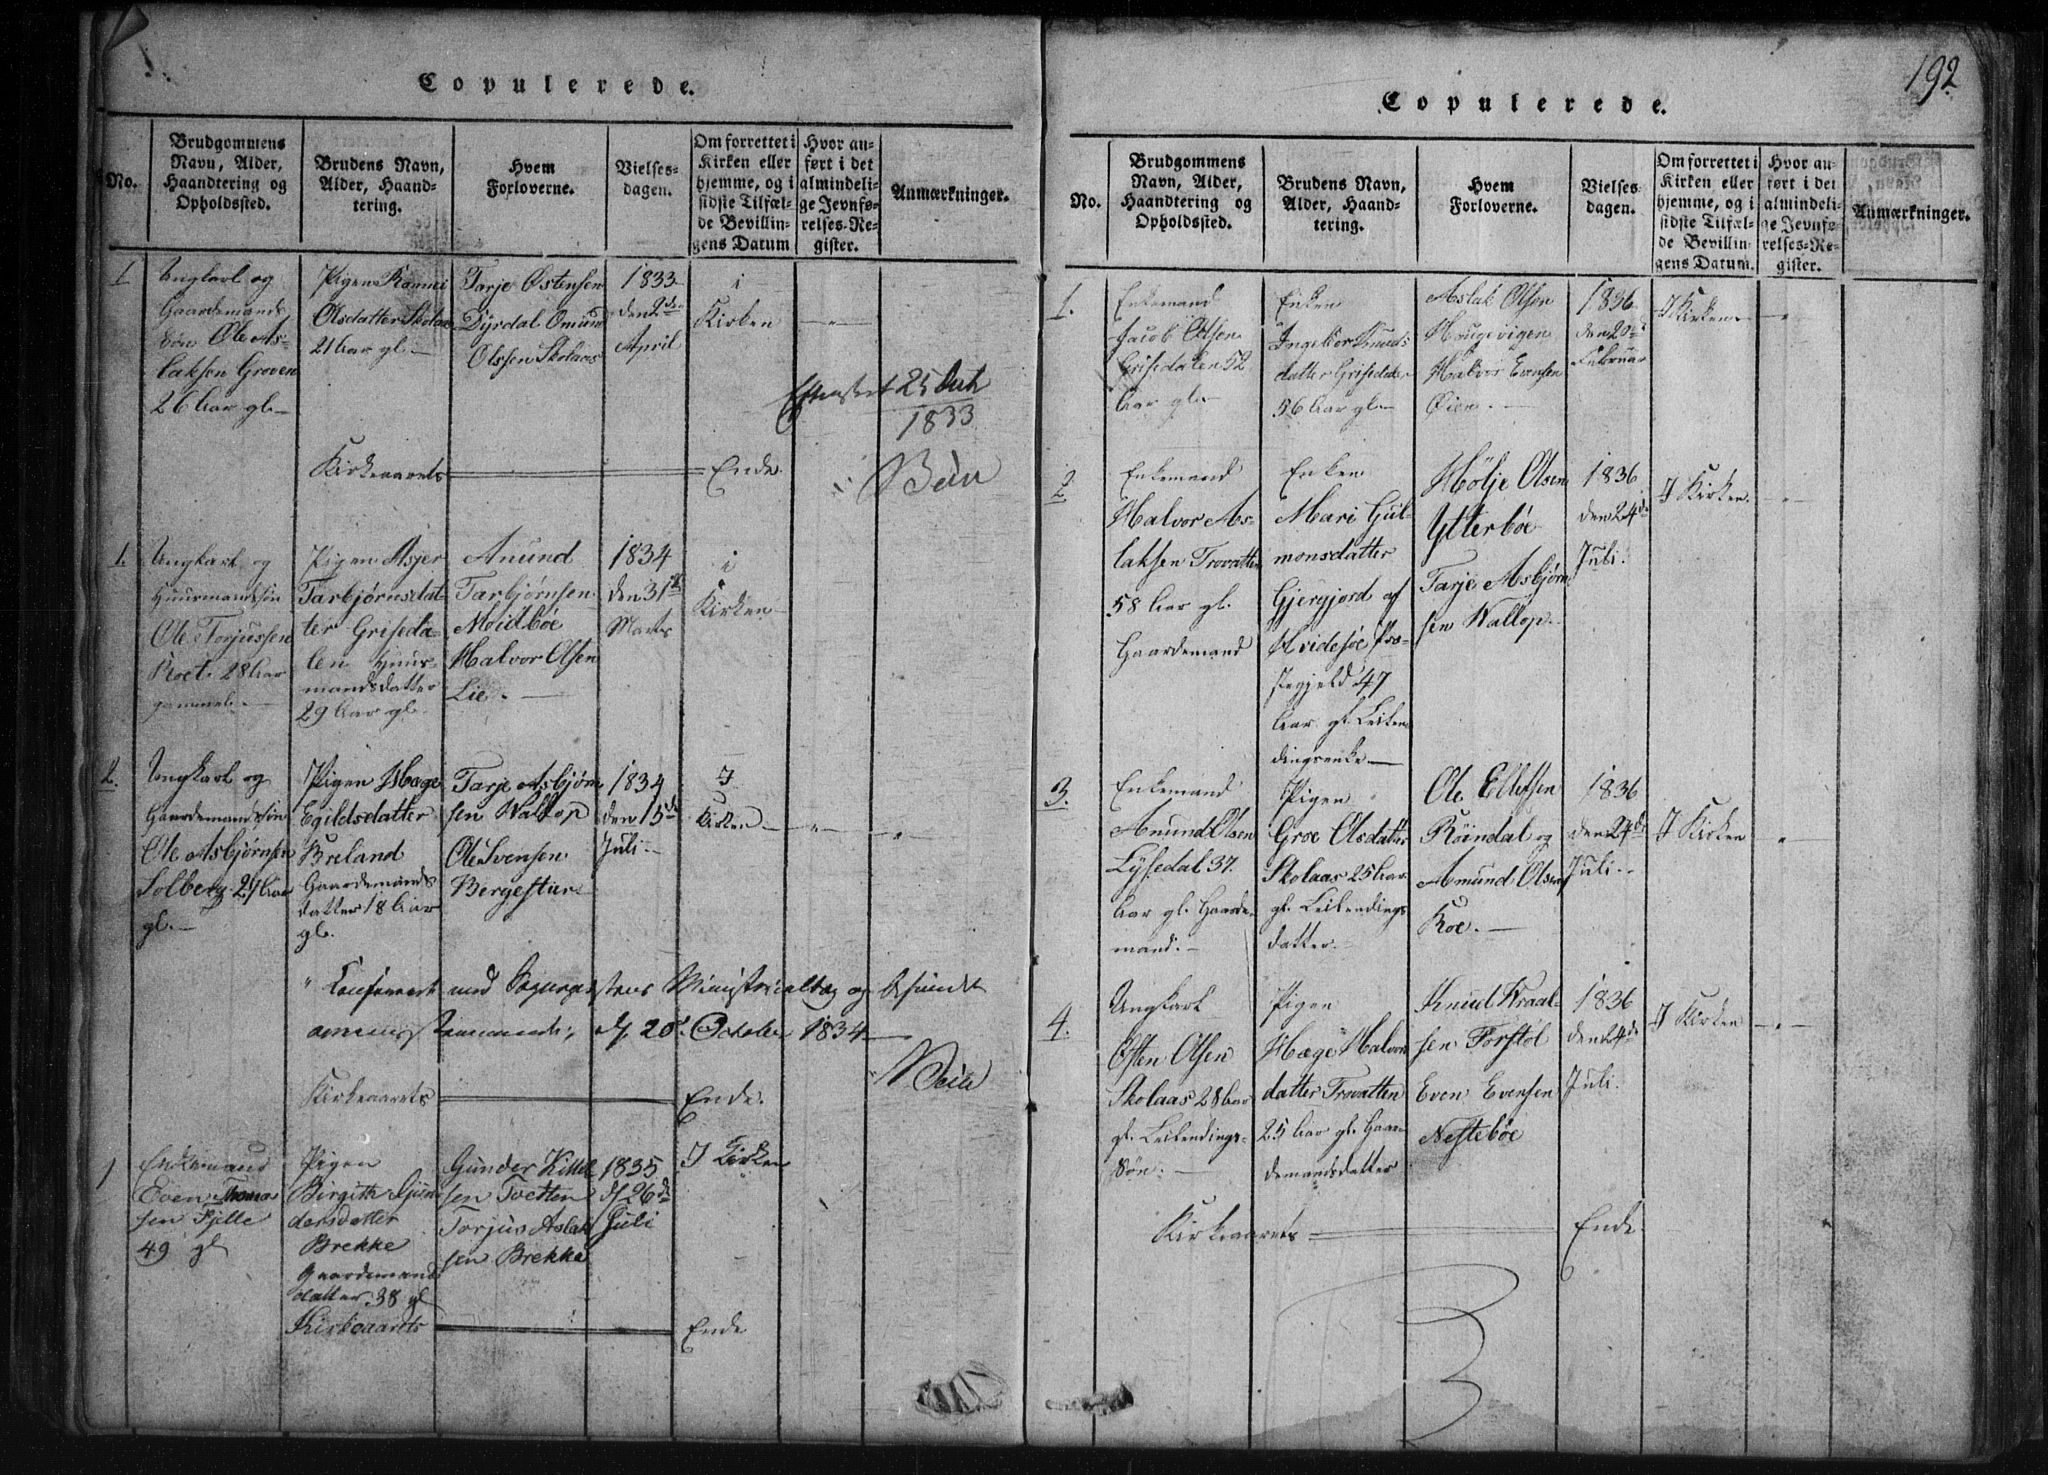 Copulerede.
No.
Brudgommens
Navn, Alder,
Haandtering og
Opholdssted.
Brudens Navn,
Alder, Haand-
tering.
Hvem
Forloverne.
Vielses-
dagen.
Om forrettet i
Kirken eller
hjemme, og i
sidste Tilfæl-
de Bevillin-
gens Datum
Hvor an-
ført i det
almindeli-
ge Jevnfø-
relses-Re-
gister.
Anmærkninger.
1
Ungkarl og
Gaardemands
søn Ole As-
laksen Groven
26 Aar gl.
Pigen
Olsdatter Skolaas
21 Aar gl.
Tarje Østensen
Dyrdal Omund
Olssen Skolaas
1833
den 2den
April
i
Kirken
25 Octb
1833
Kirkeaarets
Ende.
1.
Ungkarl og
Huusmandssøn
Ole Torjussen
Roet. 28 Aar
gammel.
Pigen Asjer
Tarbjørnsdat-
ter Griseda-
len Huus-
mandsdatter
29 Aar gl.
Anund
Tarbjørnsen
Moidbøe
Halvor Olsen
Lie.
1834
den 31te
Marts
i
Kirken
2.
Ungkarl og
Gaardemandssøn
Ole Asbjørnsen
Solberg 27 Aar
gl.
Pigen Hæge
Egildsdatter
Breland
Gaardemands
datter 18 Aar
gl.
Tarje Asbjørn
sen Vallop
Ole Svensen
Bergestur
1834
den 15de
Juli
I
Kirken
Confereret med Sognepræstens Ministerialbog og befundet
overeensstemmende, d. 20d. October 1834
Kirkeaarets
Ende.
1
Enkemand
Even Thomas
sen Fjelle
49 gl
Pigen
Birgith Gun
dersdatter
Brekke
Gaardemand
datter. 38 gl
Gunder Kittil
sen Tvetten
Torjus Aslak
sen Brekke
1835
d. 26de
Juli
I Kirken
Kirkeaarets
Ende
192
Copulerede.
No.
Brudgommens
Navn, Alder,
Haandtering og
Opholdssted.
Brudens Navn,
Alder, Haand-
tering.
Hvem
Forloverne.
Vielses-
dagen.
Om forrettet i
Kirken eller
hjemme, og i
sidste Tilfæl-
de Bevillin-
gens Datum.
Hvor an-
ført i det
almindeli-
ge Jevnfø-
relses-Re-
gister.
Anmærkninger.
1.
Enkemand
Jacob Olsen
Grisedalen 52
Aar gl.
Enken
Ingebor Knuds
datter Grisedalen
56 Aar gl.
Aslak Olsen
Haugevigen
Halvor Evensen
Øien.
1836
den
Februar
I Kirken
2
Enkemand
Halvor As-
laksen Trovatten
58 Aar gl.
Gaardemand
Enken
Mari Gul-
monsdatter
Gjergjord af
Hvidesøe Præ-
stegjeld 47
Aar gl. Leilen
dingsenke
Hölje Olsen
Ytterbøe
Tarje Asbjørn
sen Vallop.
1836
den 24de
Juli.
I Kirken.
3.
Enkemand
Amund Olsen
Lysedal 37.
Aar gl. Gaarde-
mand.
Pigen
Groe Olsdatter
Skolaas 25 Aar
gl. Leilendings
datter.
Ole Ellefsen
Röindal og
Amund Olsen
Roe.
1836
den 24de
Juli.
I Kirken
4.
Ungkarl
Østen Olsen
Skolaas 28 Aar
gl. Leilendings-
søn.
Pigen
Hæge Halvors
datter Trovatten
25 Aar gl. Gaar
demandsdatter
Knud Kraal-
sen Forstöl
Even Evensen
Nestebøe
1836
den 24de
Juli.
I Kirken
Kirkeaarets
Ende.